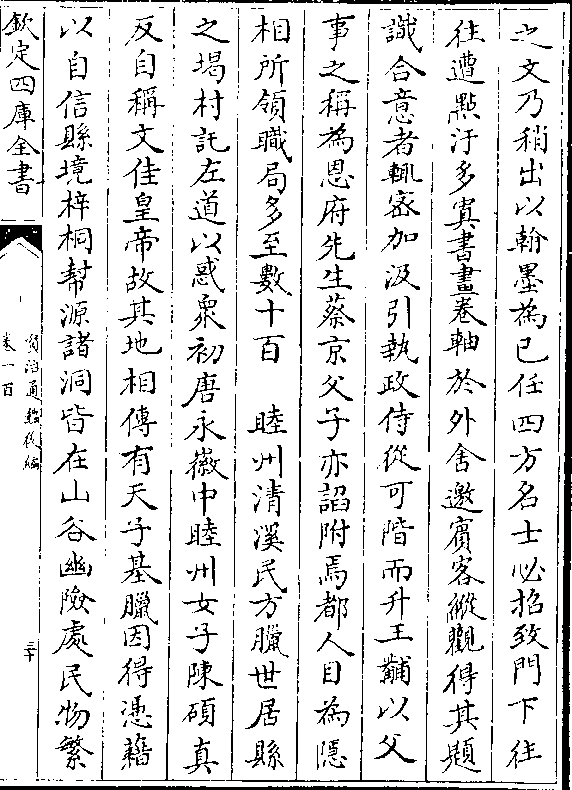 之文乃稍出以翰墨為己任四方名士必招致門下往
往遭㸃汙多寘書畫卷軸於外舍邀賓客縱觀得其題
識合意者輒宻加汲引執政侍從可階而升王黼以父
事之稱為恩府先生蔡京父子亦諂附焉都人目為隱
相所領職局多至數十百　睦州清溪民方臘世居縣
之堨村託左道以惑衆初唐永徽中睦州女子陳碩真
反自稱文佳皇帝故其地相傳有天子基臘因得憑藉
以自信縣境梓桐幇源諸洞皆在山谷幽險處民物繁
欽定四庫全書
資治通鑑後編
卷一百
三十